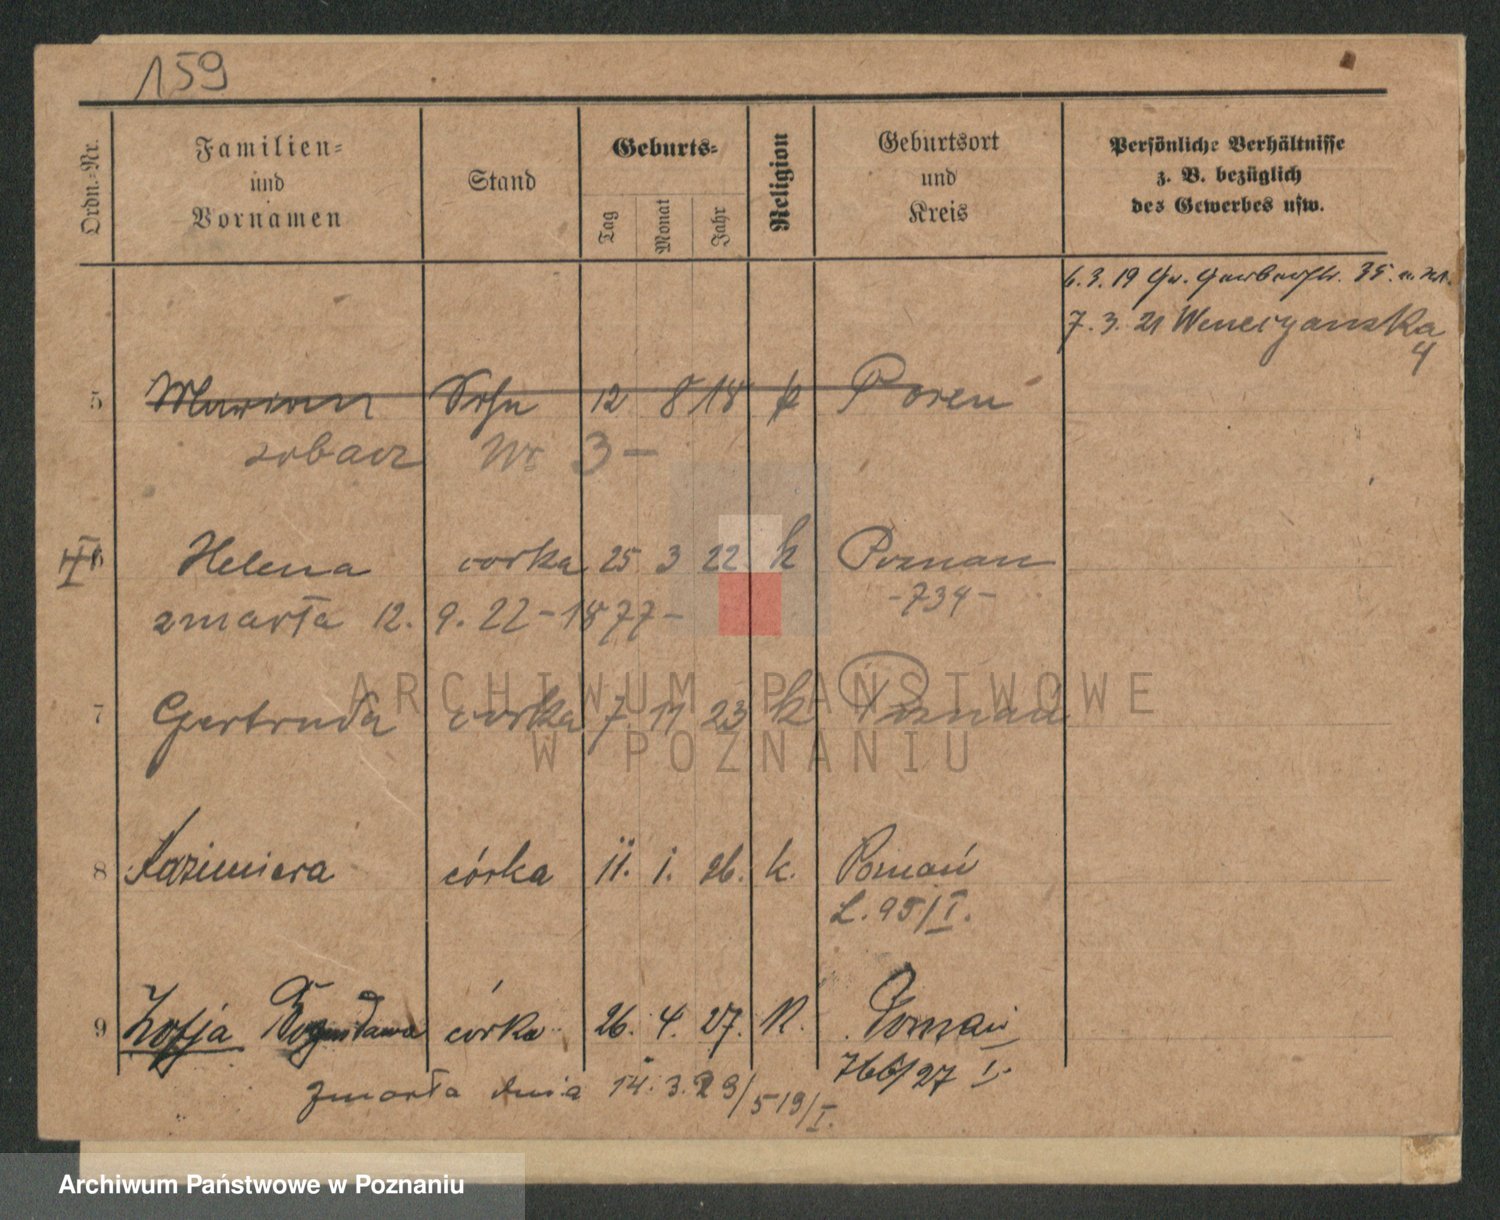 159
Ordn.-Nr.
Familien-
und
Vornamen
Stand
Geburts-
Tag
Monat
Jahr
Religion
Geburtsort
und
Kreis
Persönliche Verhältnisse
z. B. bezüglich
des Gewerbes usw.
6. 3. 19 Gr. Gerberstr. 35.
7. 3. 21 Wenecyanska
4
5 Marian Sohn 12 8 18 k Posen
zobacz Nr 3 –
6 Helena corka 25 3 22. k Poznan
-734-
zmarła 12. 9. 22 – 1877 –
7 Gertruda corka 7. 11 23 k Poznań
8 Kazimiera córka 11. 1. 26. k. Poznań
L. 95/I.
9 Zofja Bogusława córka 26. 4. 27. k. Poznań
766/27 I.
zmarła dnia 14. 3. 29/519/I.
ARCHIWUM PAŃSTWOWE
W POZNANIU
Archiwum Państwowe w Poznaniu